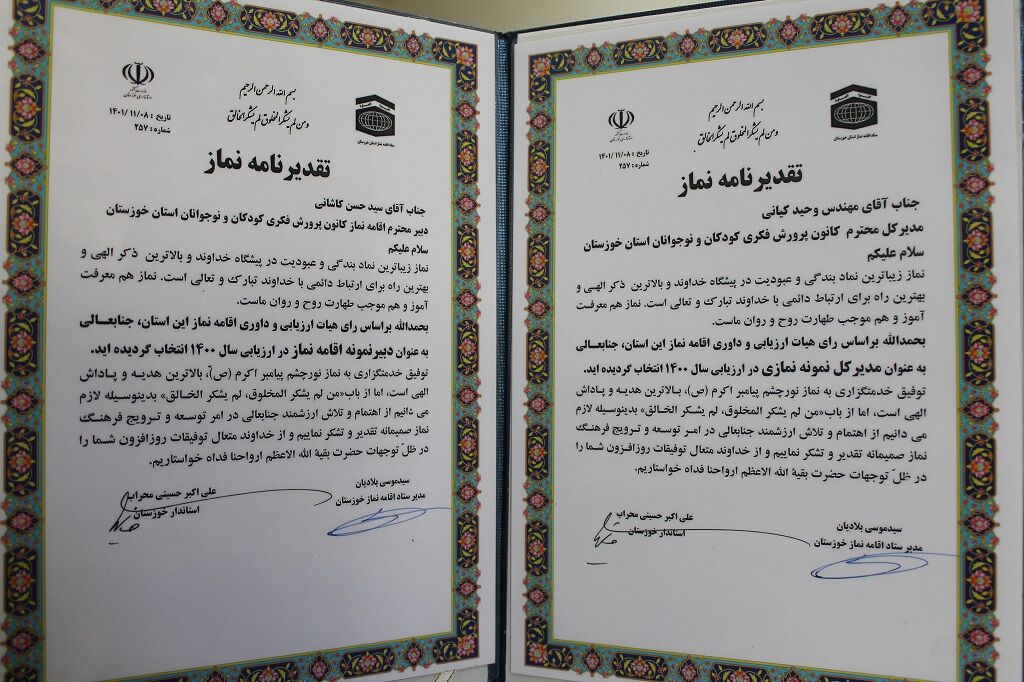 بسم الله الرحمن الرحیم
و من لم یشکر المخلوق لم یشکر الخالق
ستاد اقامه نماز استان خوزستان
تاریخ : ۱۴۰۱/۱۱/۰۸
شماره : ۲۵۷
تقدیرنامه نماز
جناب آقای مهندس وحید کیانی
مدیرکل محترم کانون پرورش فکری کودکان و نوجوانان استان خوزستان
سلام علیکم
نماز زیباترین نماد بندگی و عبودیت در پیشگاه خداوند و بالاترین ذکر الهی و
بهترین راه برای ارتباط دائمی با خداوند تبارک و تعالی است. نماز هم معرفت
آموز و هم موجب طهارت روح و روان ماست.
بحمدالله براساس رای هیات ارزیابی و داوری اقامه نماز این استان، جنابعالی
به عنوان مدیرکل نمونه نمازی در ارزیابی سال ۱۴۰۰ انتخاب گردیده اید.
توفیق خدمتگزاری به نماز نورچشم پیامبر اکرم (ص)، بالاترین هدیه و پاداش
الهی است، اما از باب«من لم یشکر المخلوق، لم یشکر الخالق» بدینوسیله لازم
می دانیم از اهتمام و تلاش ارزشمند جنابعالی در امر توسعه و ترویج فرهنگ
نماز صمیمانه تقدیر و تشکر نماییم و از خداوند متعال توفیقات روزافزون شما را
در ظلّ توجهات حضرت بقیة الله الاعظم ارواحنا فداه خواستاریم.
سیدموسی بلادیان
مدیر ستاد اقامه نماز خوزستان
علی اکبر حسینی محراب
استاندار خوزستان
بسم الله الرحمن الرحیم
و من لم یشکر المخلوق لم یشکر الخالق
ستاد اقامه نماز استان خوزستان
تاریخ : ۱۴۰۱/۱۱/۰۸
شماره : ۲۵۷
تقدیرنامه نماز
جناب آقای سید حسن کاشانی
دبیر محترم اقامه نماز کانون پرورش فکری کودکان و نوجوانان استان خوزستان
سلام علیکم
نماز زیباترین نماد بندگی و عبودیت در پیشگاه خداوند و بالاترین ذکر الهی و
بهترین راه برای ارتباط دائمی با خداوند تبارک و تعالی است. نماز هم معرفت
آموز و هم موجب طهارت روح و روان ماست.
بحمدالله براساس رای هیات ارزیابی و داوری اقامه نماز این استان، جنابعالی
به عنوان دبیرنمونه اقامه نماز در ارزیابی سال ۱۴۰۰ انتخاب گردیده اید.
توفیق خدمتگزاری به نماز نورچشم پیامبر اکرم (ص)، بالاترین هدیه و پاداش
الهی است، اما از باب«من لم یشکر المخلوق، لم یشکر الخالق» بدینوسیله لازم
می دانیم از اهتمام و تلاش ارزشمند جنابعالی در امر توسعه و ترویج فرهنگ
نماز صمیمانه تقدیر و تشکر نماییم و از خداوند متعال توفیقات روزافزون شما را
در ظلّ توجهات حضرت بقیة الله الاعظم ارواحنا فداه خواستاریم.
سیدموسی بلادیان
مدیر ستاد اقامه نماز خوزستان
علی اکبر حسینی محراب
استاندار خوزستان